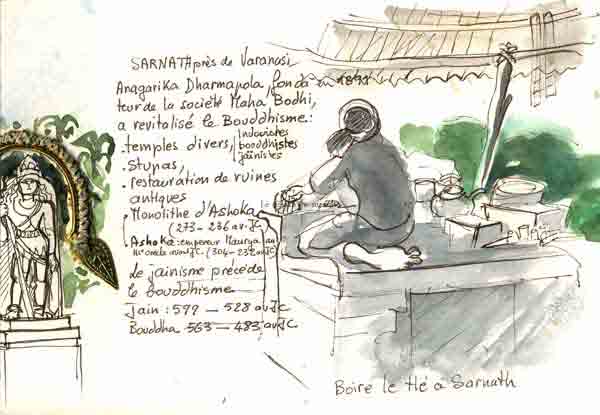 SARNATH près de Varanasi
Anagarika Dharmapala, fonda en 1891
teur de la société Maha Bodhi,
a revitalisé le Bouddhisme :
. temples divers, hindouistes
bouddhistes
jaïnistes
. Stupas,
. restauration de ruines
antiques
. Monolithe d'Ashoka
(273 - 236 av. JC
. Ashoka : empereur Maurya au
III° siècle avant JC. (304 - 232 av JC
Le jainisme précède
le bouddhisme
Jain : 599 - 528 av JC
Bouddha 563 - 483 av JC
Boire le thé à Sarnath